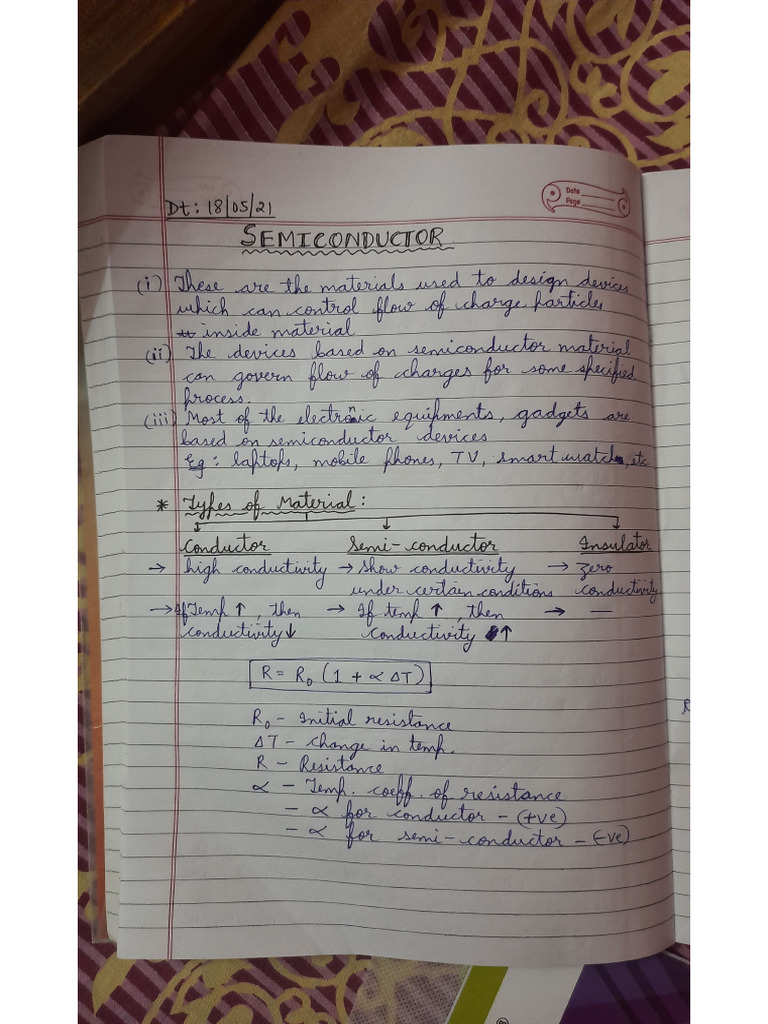 Date
Page
Dt: 18/05/21
SEMICONDUCTOR
(i) These are the materials used to design devices
which can control flow of charge particles
inside material
(ii) The devices based on semiconductor material
can govern flow of charges for some specified
process.
(iii) Most of the electronic equipments, gadgets are
based on semiconductor devices
Eg: laptops, mobile phones, TV, smart watch, etc
* Types of Material:
Conductor Semi-conductor Insulator
→ high conductivity → show conductivity → zero
under certain conditions conductivity
→ If Temp ↑, then → If temp ↑, then → —
conductivity ↓ conductivity ↑
R = R₀ (1 + α ΔT)
R₀ - Initial resistance
ΔT - change in temp.
R - Resistance
α - Temp. coeff. of resistance
- α for conductor - (+ve)
- α for semi-conductor - (-ve)
R